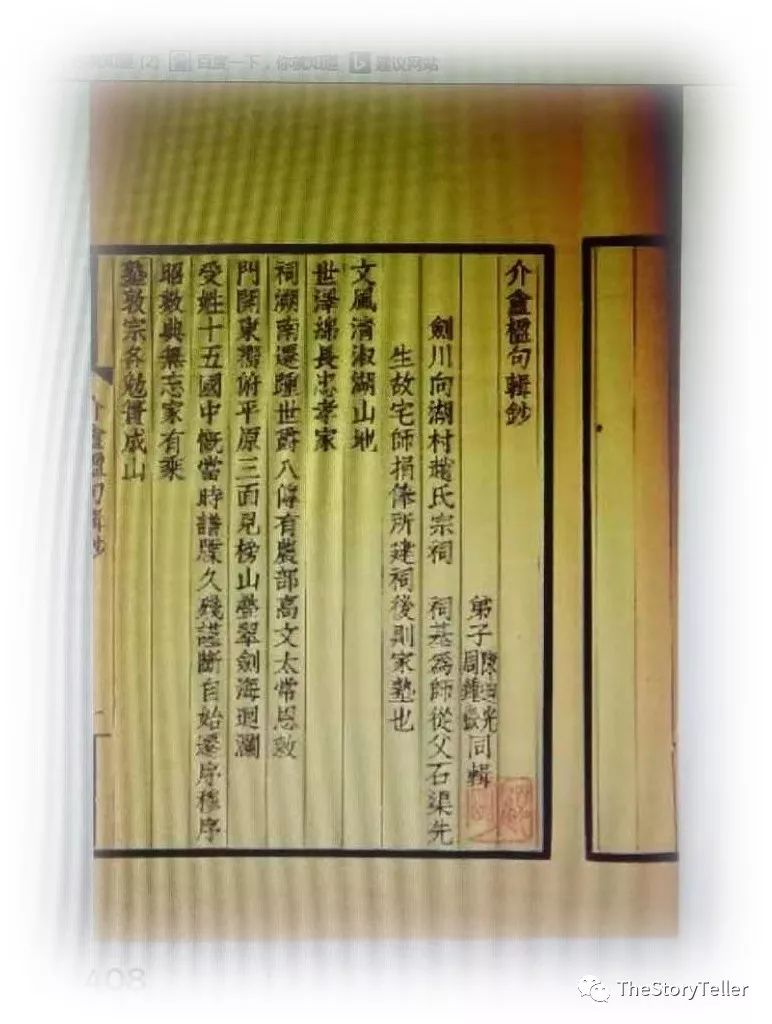 百度一下，你就知道 建议网站
介盦楹句輯鈔
弟子 周鍾嶽 同輯
劍川向湖村趙氏宗祠 祠基爲師從父石渠先
生故宅師捐俸所建祠後則家塾也
文風清淑湖山地
世澤綿長忠孝家
祠湖南遷踵世爵八傳有農部高文太常恩
門開東俯平原三面見榜山疊翠劍海迴瀾
受姓十五國中慨當時譜牒久殘斷自始遷序穆序
昭數典無忘家有乘
塾敦宗各勉簣成山
介盦楹句輯鈔
408
TheStoryTeller